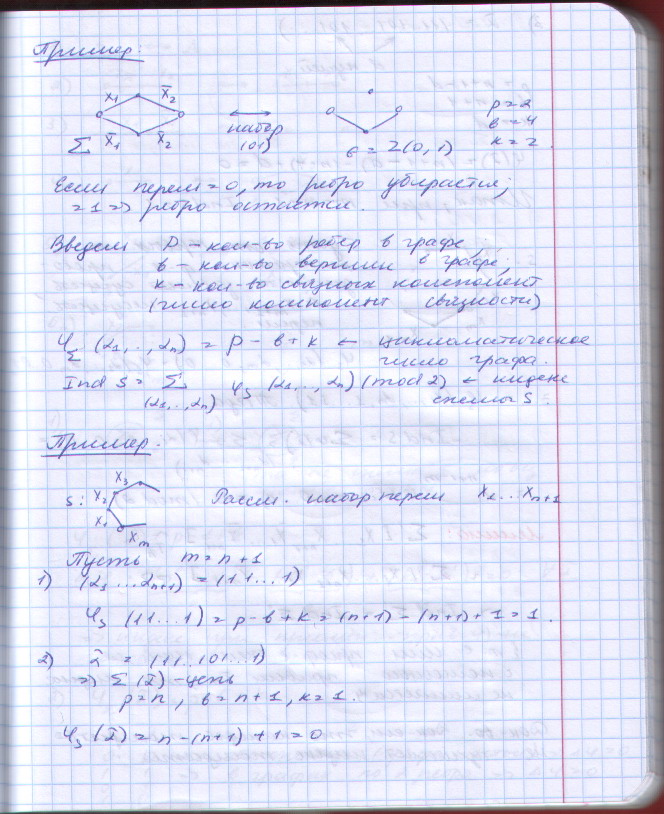 Пример:
x₁ x̄₂
p=2
набор
в=4
Σ x̄₁ x̄₂ (01) в = Σ(0,1) к=2.
Если перем=0, то ребро убирается;
=1 => ребро остается.
Введем p – кол-во ребер в графе;
в – кол-во вершин в графе;
к – кол-во связных компонент
(число компонент связности)
Ψ_Σ (α₁,..,αₙ) = p – в + к ← цикломатическое
число графа.
Ind S = Σ Ψ_S (α₁,..,αₙ) (mod 2) ← индекс
(α₁,..,αₙ) схемы S.
Пример.
x₃
S: x₂ Рассм. набор перем x₁...xₙ₊₁
x₁
xₘ
Пусть m = n+1
1) (α₁...αₙ₊₁) = (11...1)
Ψ_S (11...1) = p-в+к = (n+1) – (n+1) + 1 = 1.
2) α̃ = (11..101...1)
=> Σ(α̃) – цепь
p=n, в=n+1, к=1.
Ψ_S (α̃) = n – (n+1) + 1 = 0